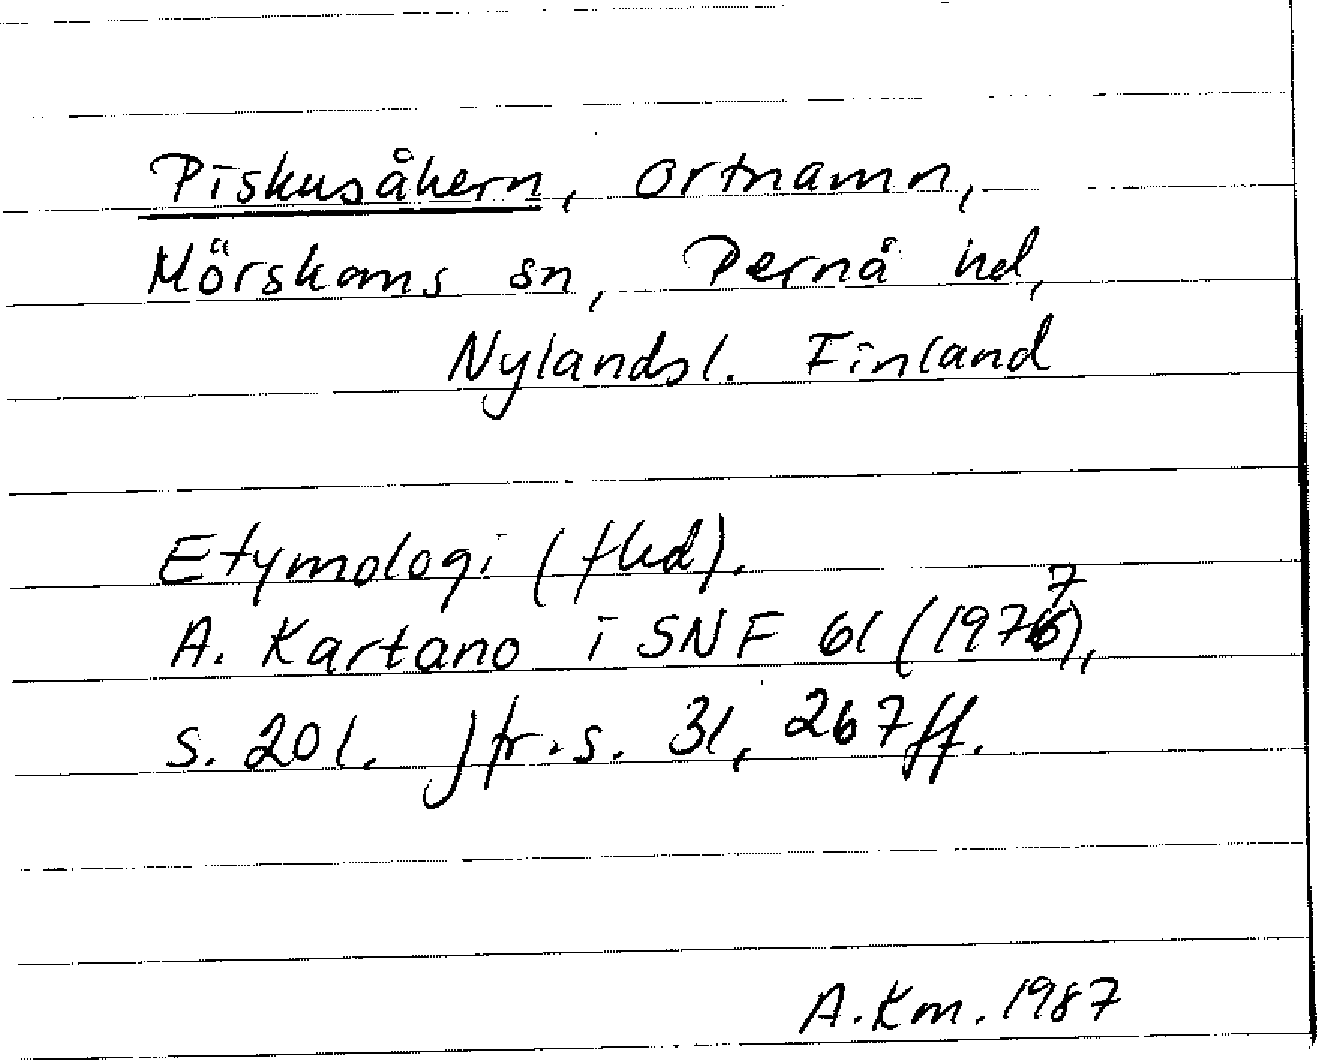 Piskusåkern, ortnamn,
Mörskoms sn, Pernå hd,
Nylandsl. Finland
Etymologi (fled).
A. Kartano i SNF 61 (1977),
s. 201. Jfr. s. 31, 267 ff.
A. Km. 1987